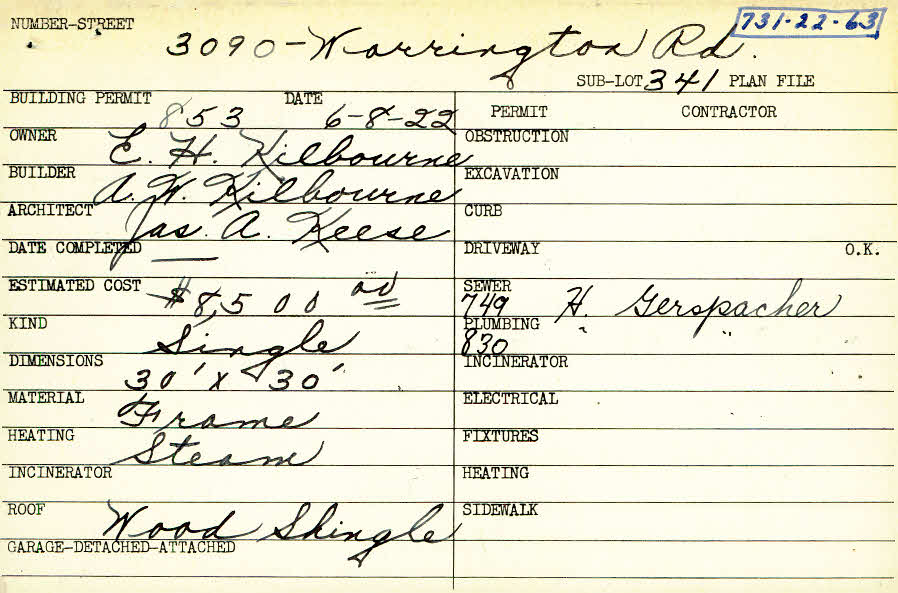 NUMBER-STREET 731-22-63
3090-Warrington Rd.
SUB-LOT 341 PLAN FILE
BUILDING PERMIT 853 DATE 6-8-22
OWNER E. H. Kilbourne
BUILDER A. W. Kilbourne
ARCHITECT Jas. A. Keese
DATE COMPLETED —
ESTIMATED COST $8,500 00
KIND Single
DIMENSIONS 30' x 30'
MATERIAL Frame
HEATING Steam
INCINERATOR
ROOF Wood Shingle
GARAGE-DETACHED-ATTACHED
PERMIT CONTRACTOR
OBSTRUCTION
EXCAVATION
CURB
DRIVEWAY O.K.
SEWER
749 H. Gerspacher
PLUMBING " "
830
INCINERATOR
ELECTRICAL
FIXTURES
HEATING
SIDEWALK